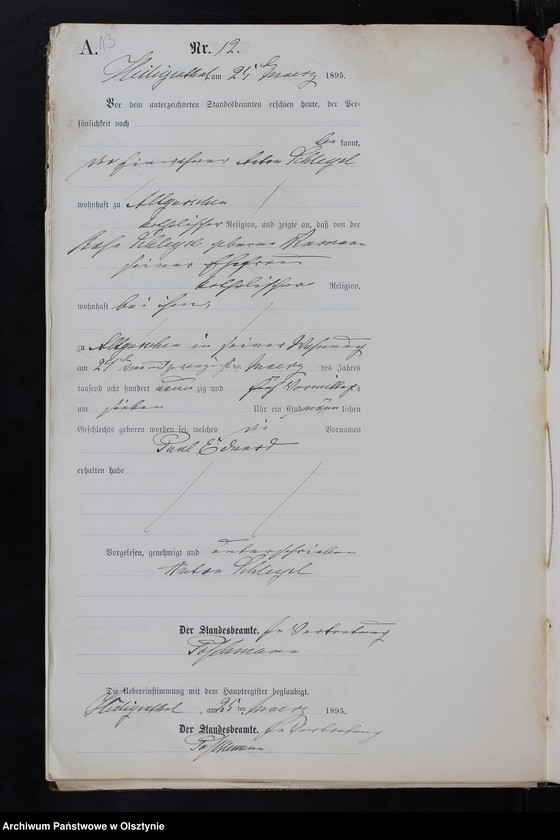 A. 13 Nr. 12.
Heiligenthal am 25ten Maerz 1895.
Vor dem unterzeichneten Standesbeamten erschien heute, der Per-
sönlichkeit nach
be kannt,
der Einwohner Anton Schlegel
wohnhaft zu
katholischer Religion, und zeigte an, daß von der
Schlegel geborene
seiner Ehefrau
katholischer Religion,
wohnhaft bei ihm,
zu in seiner Wohnung
am Maerz des Jahres
tausend acht hundert neun zig und fünf Vormittags
um sieben Uhr ein Kind männ lichen
Geschlechts geboren worden sei, welches die Vornamen
Paul Eduard
erhalten habe
Vorgelesen, genehmigt und unterschrieben
Anton Schlegel
Der Standesbeamte. In Vertretung
Poschmann
Die Uebereinstimmung mit dem Hauptregister beglaubigt.
Heiligenthal, am 25 ten Maerz 1895.
Der Standesbeamte. In Vertretung
Poschmann
Archiwum Państwowe w Olsztynie